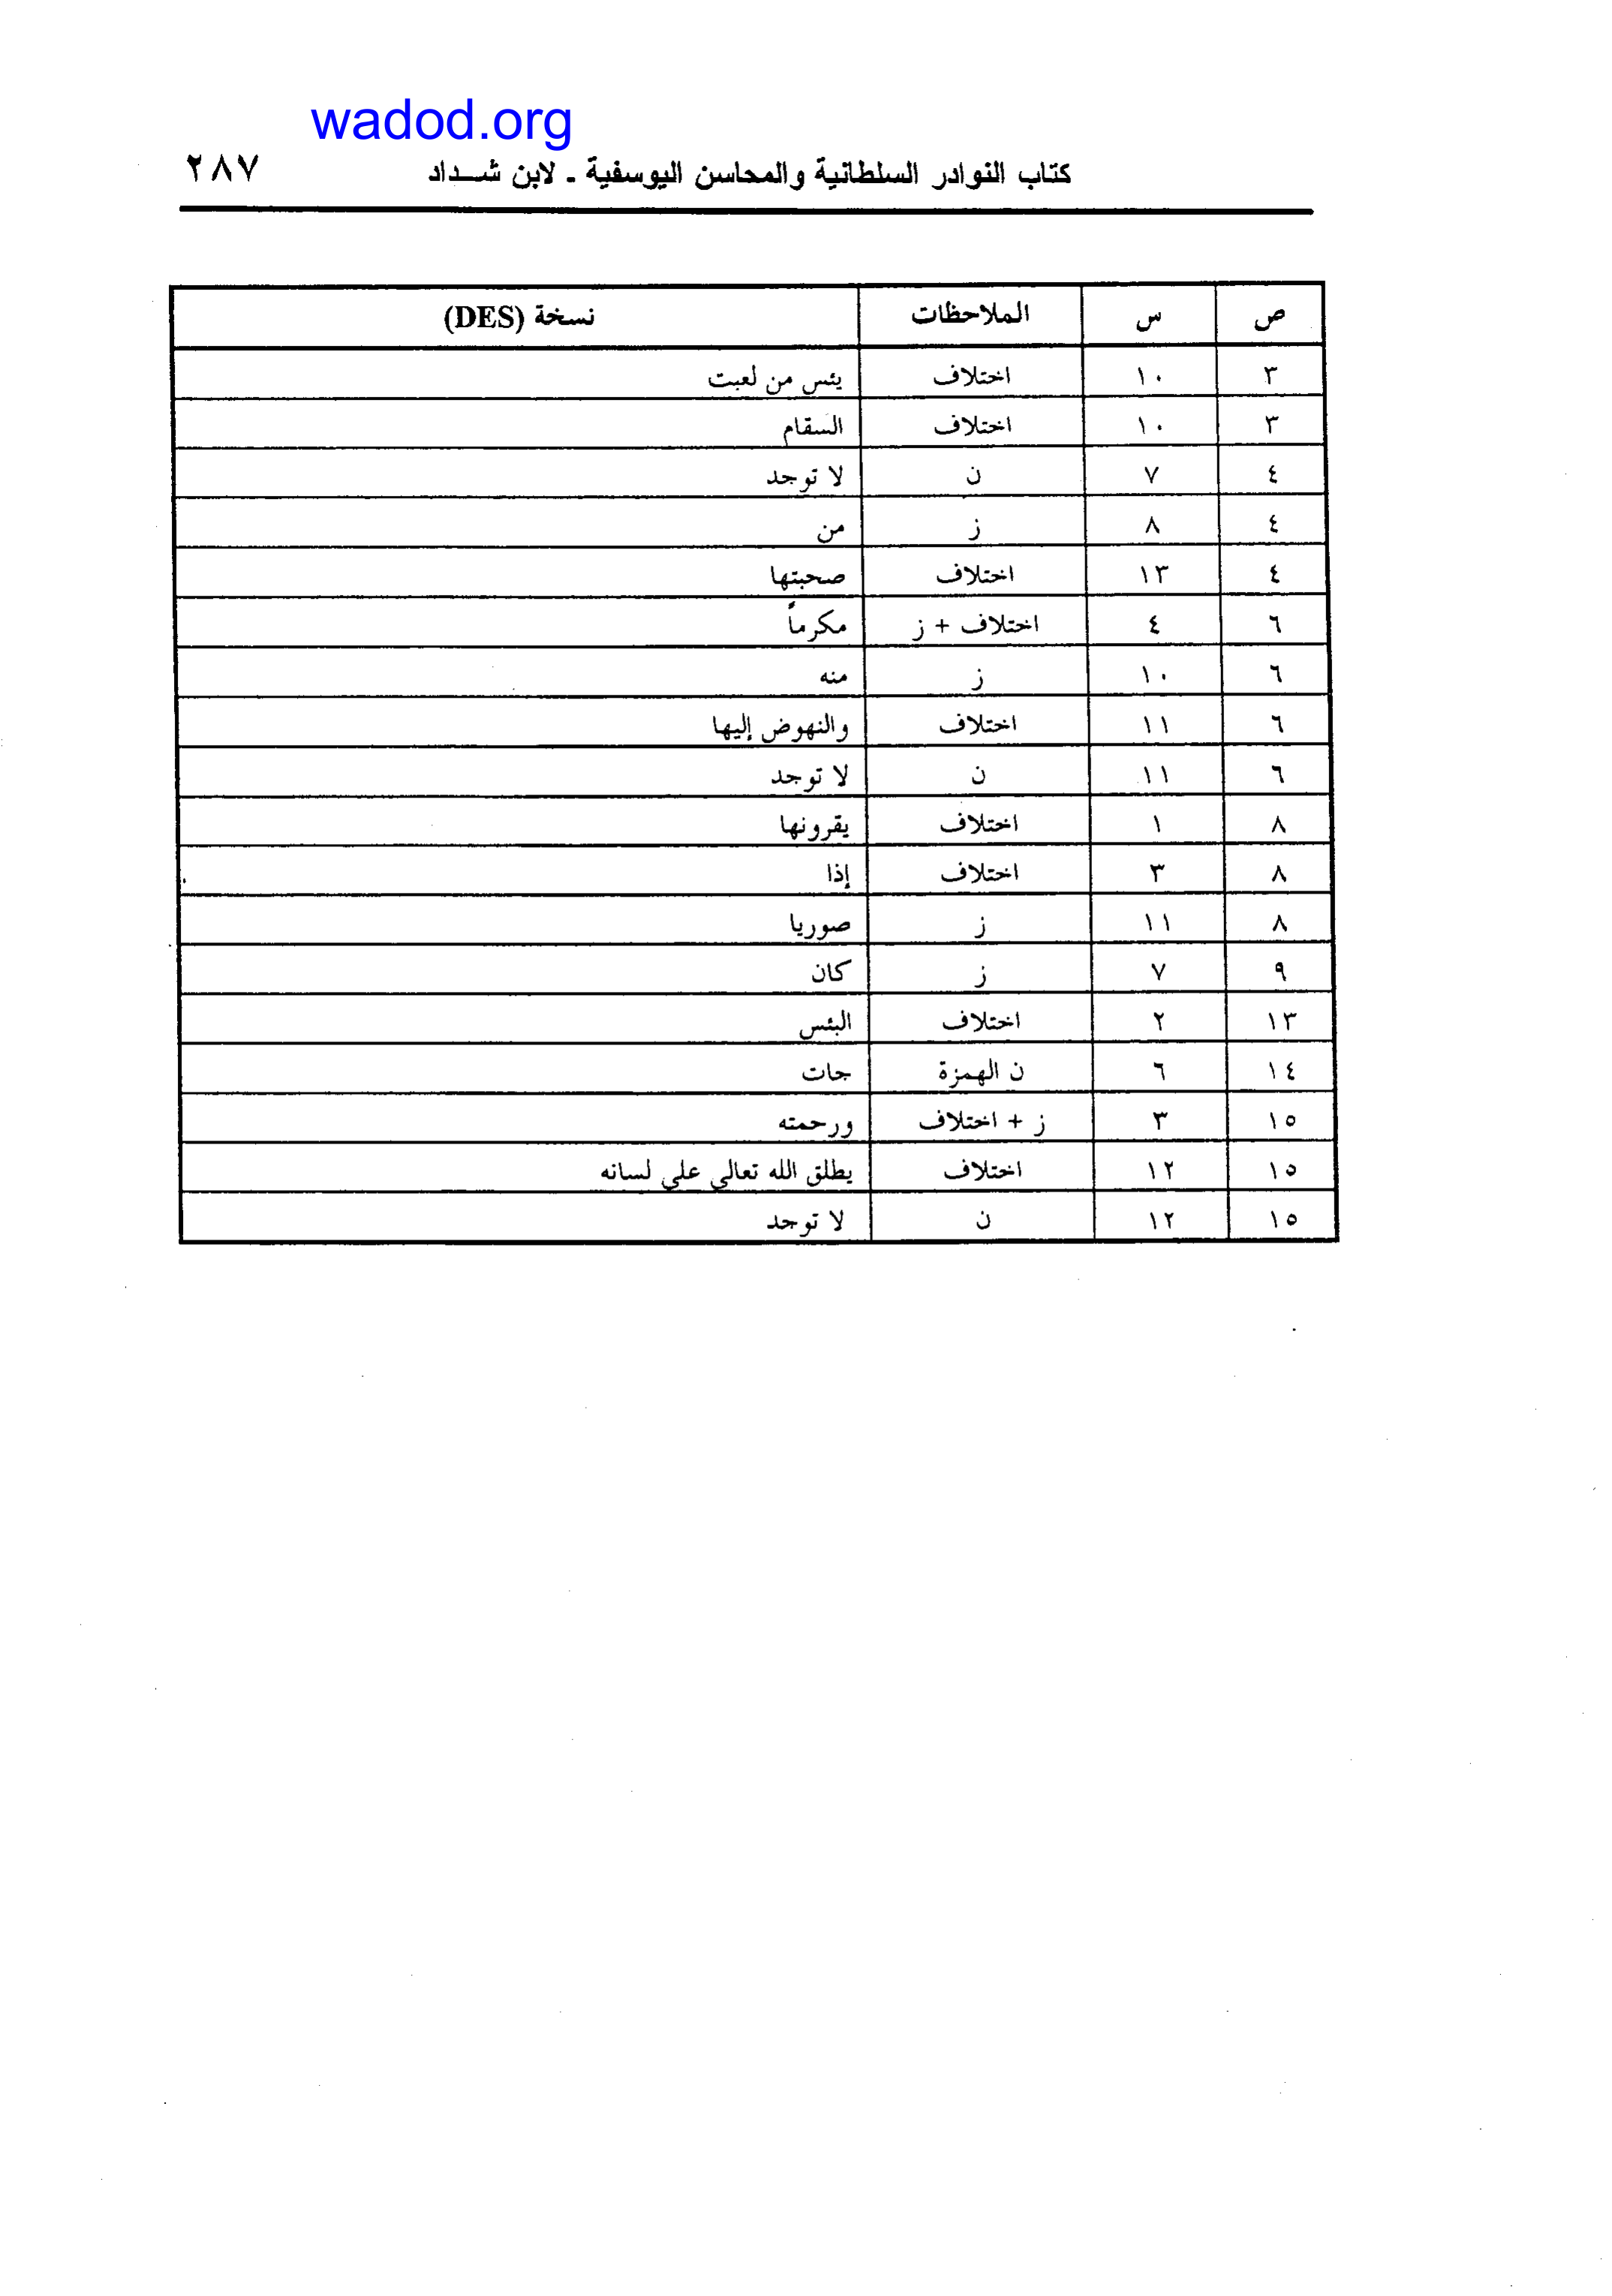 wadod.org
كتاب النوادر السلطانية والمحاسن اليوسفية ـ لابن شـداد ٢٨٧
ص س الملاحظات نسخة (DES)
٣ ١٠ اختلاف يئس من لعبت
٣ ١٠ اختلاف السقام
٤ ٧ ن لا توجد
٤ ٨ ز من
٤ ١٣ اختلاف صحبتها
٦ ٤ اختلاف + ز مكرماً
٦ ١٠ ز منه
٦ ١١ اختلاف والنهوض إليها
٦ ١١ ن لا توجد
٨ ١ اختلاف يقرونها
٨ ٣ اختلاف إذا
٨ ١١ ز صوريا
٩ ٧ ز كان
١٣ ٢ اختلاف البئس
١٤ ٦ ن الهمزة جات
١٥ ٣ ز + اختلاف ورحمته
١٥ ١٢ اختلاف يطلق الله تعالي علي لسانه
١٥ ١٢ ن لا توجد